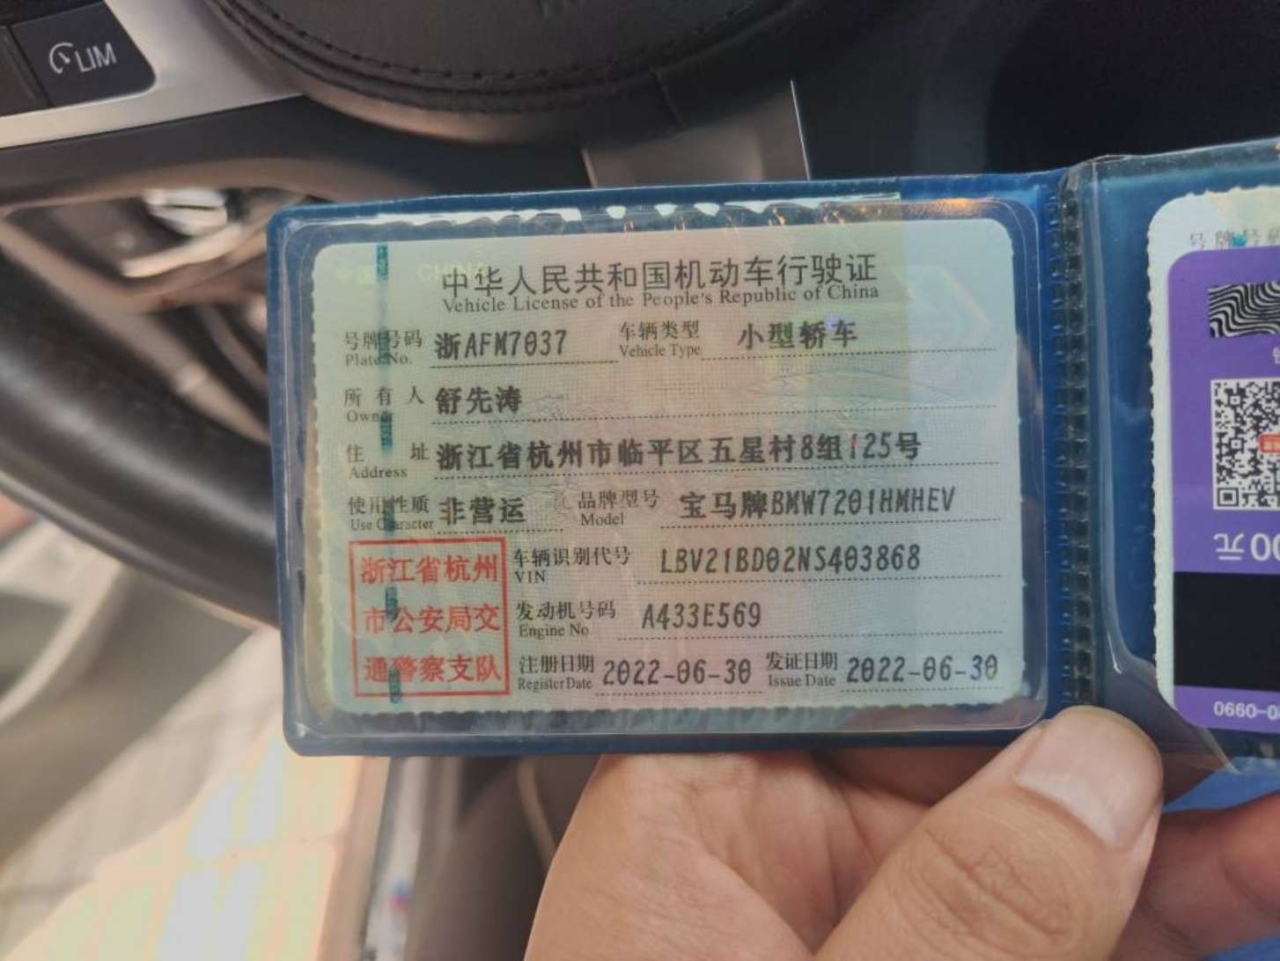 LIM
中华人民共和国机动车行驶证
Vehicle License of the People's Republic of China
号牌号码 浙AFM7037 车辆类型 小型轿车
Plate No. Vehicle Type
所有人 舒先涛
Owner
住址 浙江省杭州市临平区五星村8组125号
Address
使用性质 非营运 品牌型号 宝马牌BMW7201HMHEV
Use Character Model
浙江省杭州
市公安局交
通警察支队
车辆识别代号 LBV21BD02NS403868
VIN
发动机号码 A433E569
Engine No
注册日期 2022-06-30 发证日期 2022-06-30
Register Date Issue Date
号牌号码
00元
0660-0